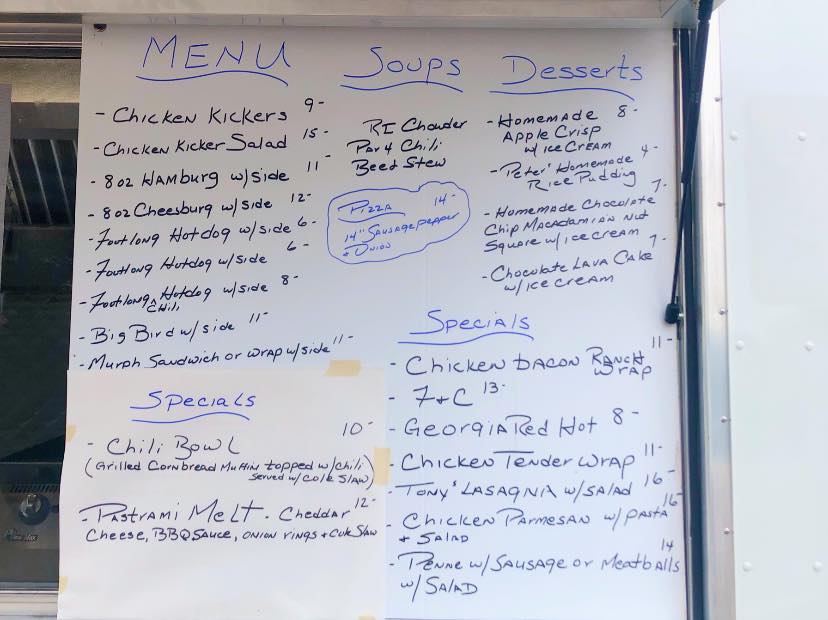 MENU
- Chicken Kickers 9-
- Chicken Kicker Salad 15-
- 8oz Hamburg w/side 11-
- 8oz Cheesburg w/side 12-
- Footlong Hotdog w/side 6-
- Footlong Hotdog w/side 6-
- Footlong ^ Hotdog w/side 8-
Chili
- Big Bird w/side 11-
- Murph Sandwich or wrap w/side 11-
Soups
RI Chowder
Par 4 Chili
Beed Stew
Pizza 14-
14" Sausage pepper
+ Onion
Desserts
- Homemade 8-
Apple Crisp
w/ ice Cream
- Peter' Homemade 4-
Rice Pudding
- Homemade Chocolate 7-
Chip Macadamian Nut
Square w/ ice cream
- Chocolate Lava Cake 7-
w/ ice cream
Specials
- Chili Bowl 10-
(Grilled Cornbread Muffin topped w/chili
Served w/ Cole Slaw)
- Pastrami Melt. Cheddar 12-
Cheese, BBQ Sauce, onion rings + Cole Slaw
Specials
- Chicken Bacon Ranch 11-
Wrap
- F+C 13-
- Georgia Red Hot 8-
- Chicken Tender Wrap 11-
- Tony's Lasagna w/ Salad 16-
- Chicken Parmesan w/ pasta 16-
+ Salad
- Penne w/ Sausage or Meatballs 14
w/ Salad